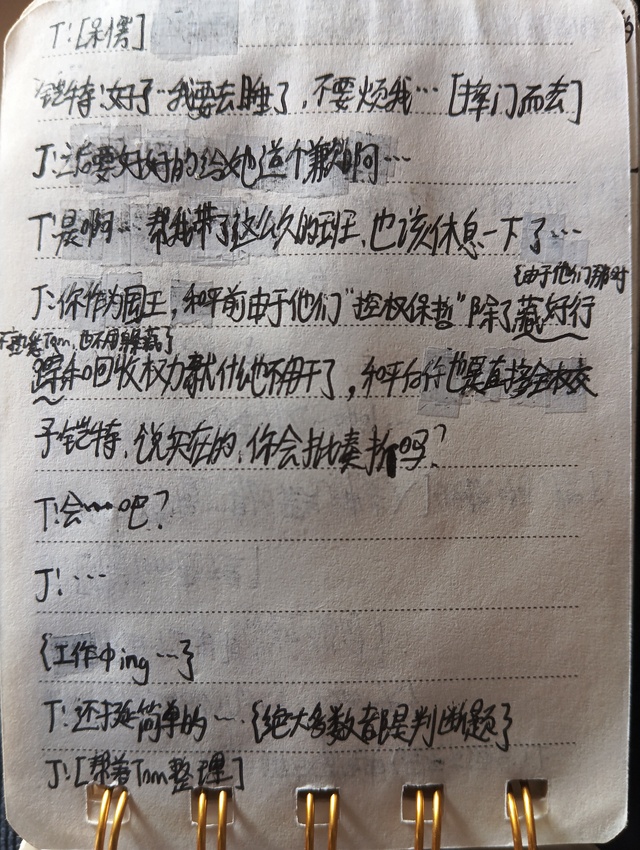 T:[呆愣]
铠特:好了…我要去睡了,不要烦我…[摔门而去]
J:之后要好好的给她道个歉啊…
T:是啊…帮我带了这么久的班,也该休息一下了…
{由于他们那时
J:你作为国王,和平前由于他们"控权保哲"除了藏好行
Tom,也不用躲藏了
踪和回收权力就什么也不用干了,和平后你也是直接全权交
予铠特,说实在的,你会批奏折吗?
T:会……吧?
J:…
{工作中ing…}
T:还挺简单的…{绝大多数都是判断题}
J:[帮着Tom整理]